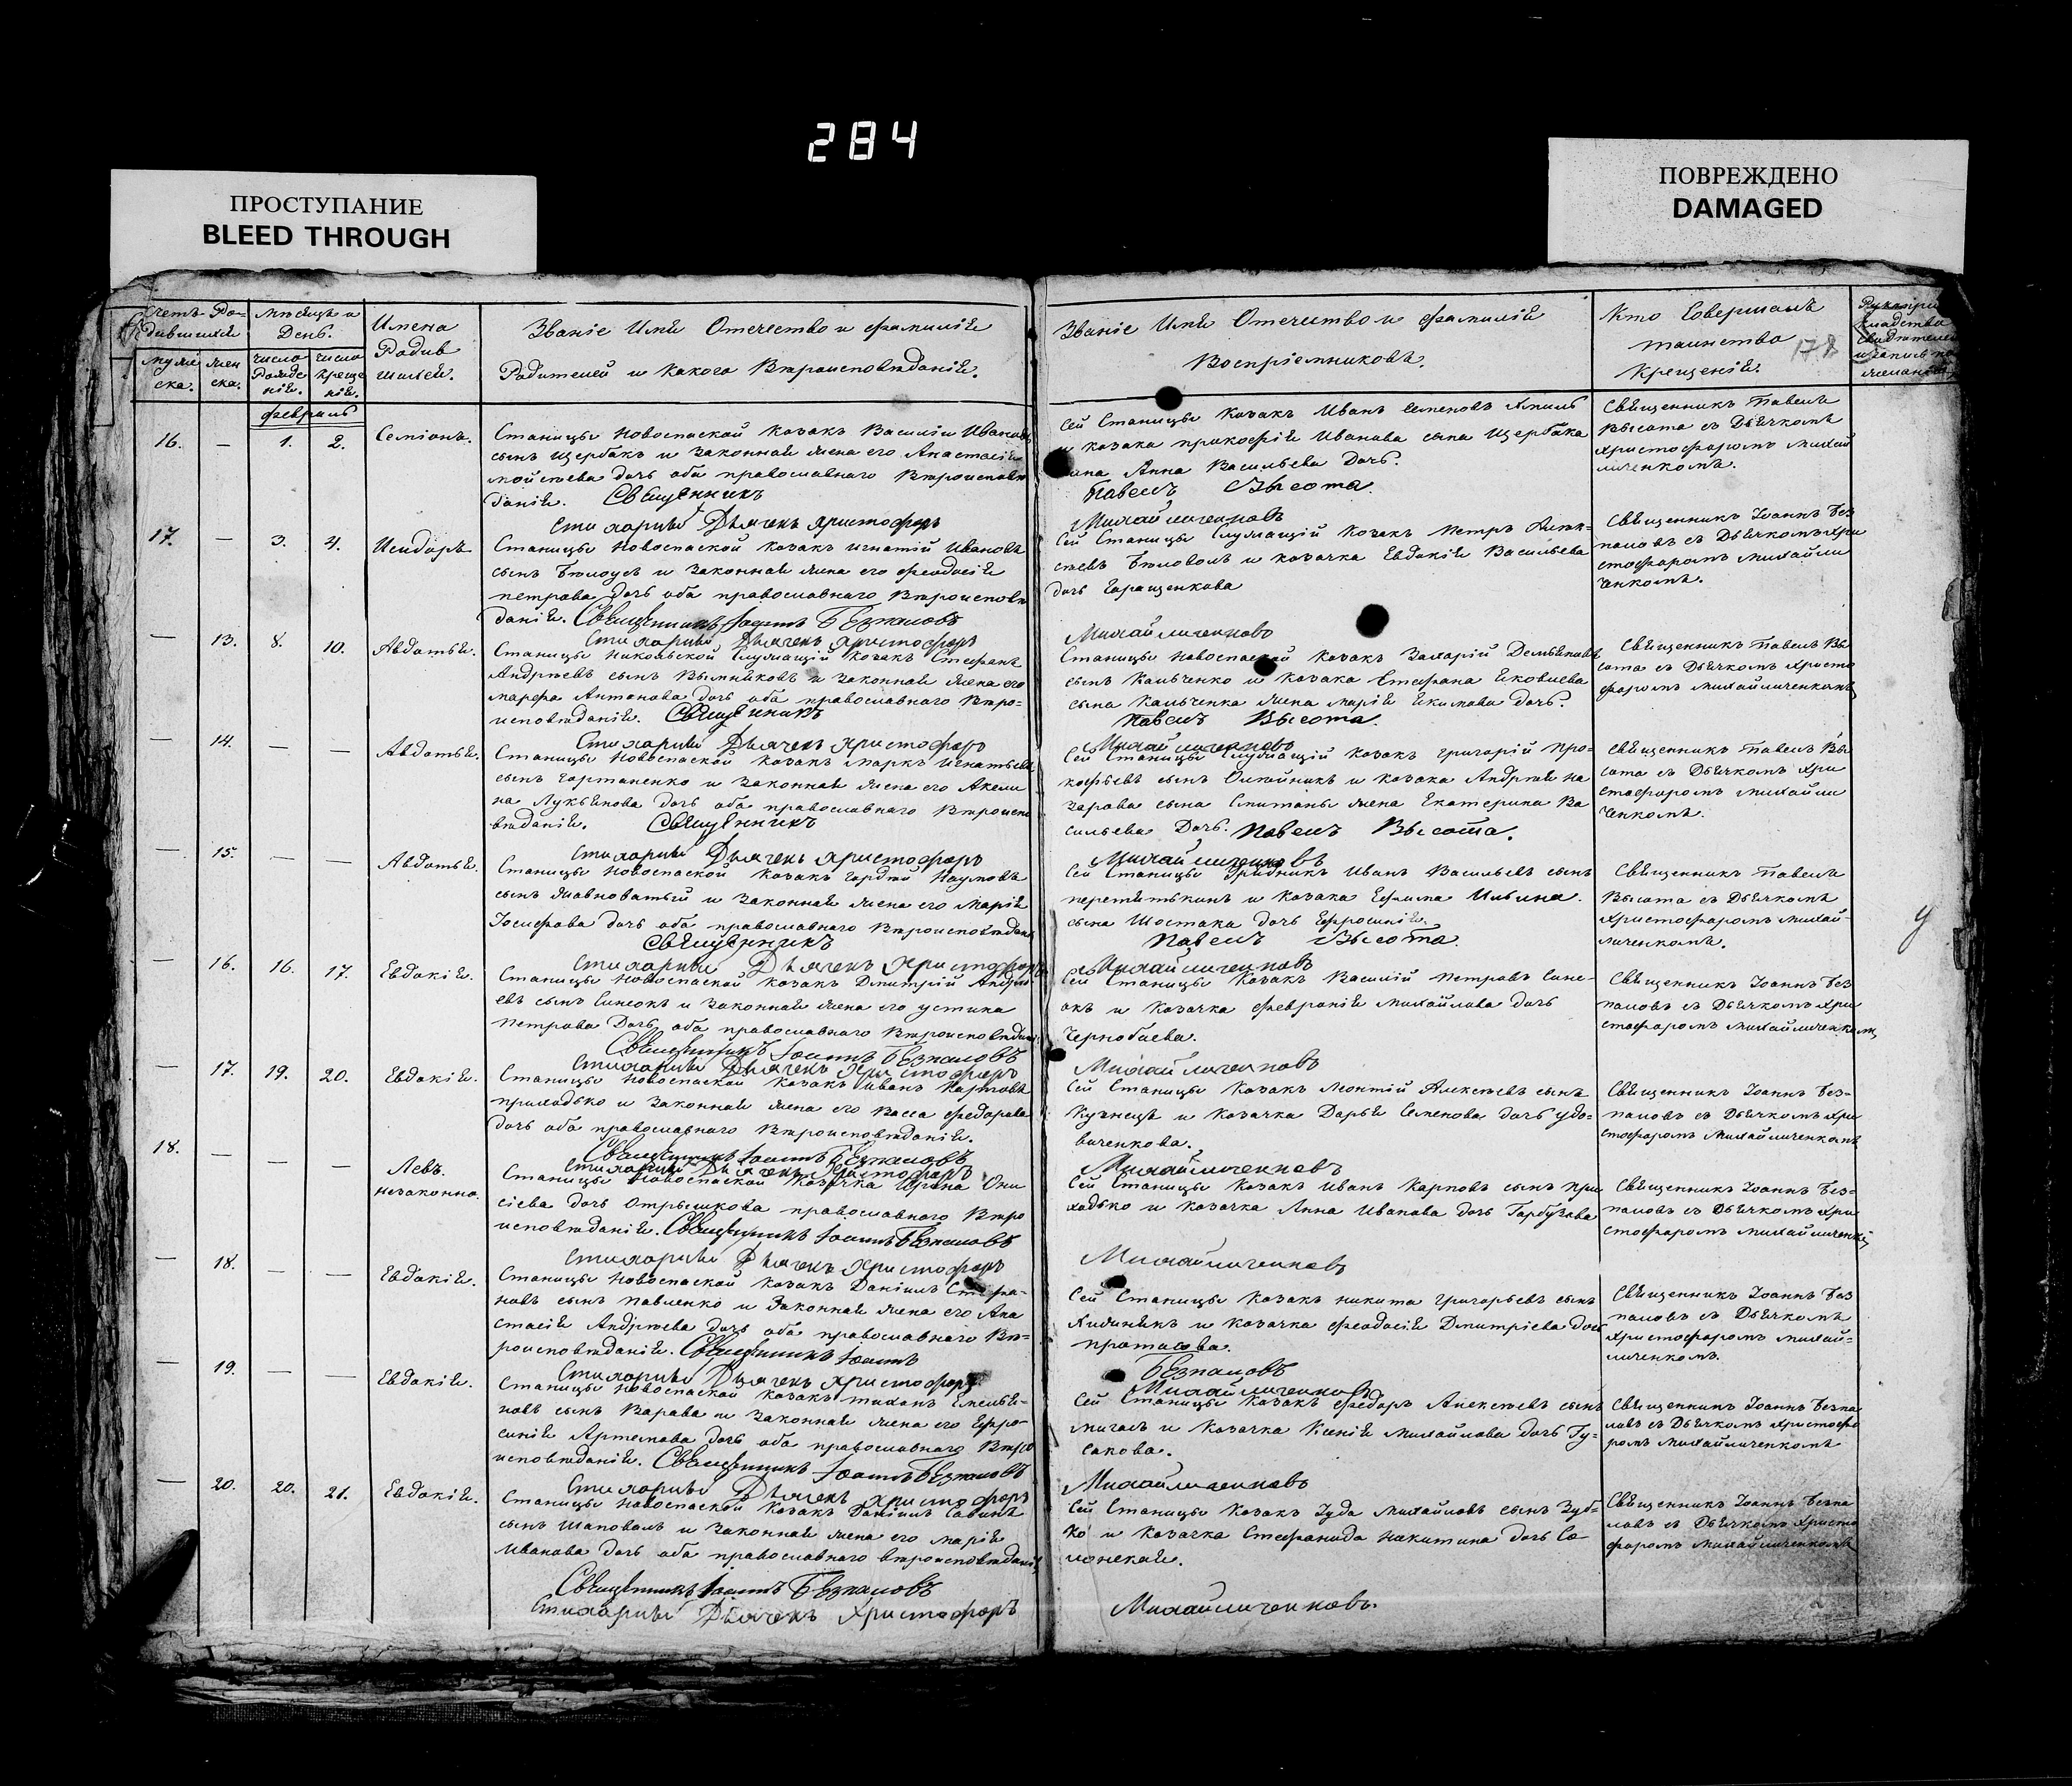 284
ПРОСТУПАНИЕ
BLEED THROUGH
ПОВРЕЖДЕНО
DAMAGED
Счетъ Ро-
дившихся
муже
ска.
жен
ска.
Мѣсяцъ и
День.
число
Рожде
нія.
число
креще
нія.
Имена
Родив
шихся.
Званіе Имя Отечество и фамилія
Родителей и какого Вѣроисповѣданія.
Званіе Имя Отечество и фамилія
Воспріемниковъ.
Кто Совершалъ
таинство
Крещенія.
178
февраль
16. — 1. 2. Семіонъ.
Станицы Новоспаской Казакъ Василій Ивановъ
сынъ Щербакъ и Законная жена его Анастасія
дочь оба православнаго Вѣроисповѣ
данія. Священникъ
Стихарный Дьячекъ Христофоръ
Сей Станицы Козакъ Иванъ Семеновъ
и казака прокофія Иванова сына Щербака
жена Анна Васильева Дочь.
Павелъ Высота
Михайличенковъ
Священникъ Павелъ
Высота съ Дьячкомъ
Христофоромъ Михай
личенкомъ.
17. — 3. 4. Исидоръ
Станицы Новоспаской Казакъ игнатій Ивановъ
сынъ Бѣлоусъ и Законная жена его Феодосія
петрова дочь оба православнаго Вѣроисповѣ
данія. Священникъ Іоаннъ Безпаловъ
Стихарный Дьячекъ Христофоръ
Сей Станицы Служащій Козакъ Петръ Алек-
сѣевъ Бѣловолъ и казачка Евдокія Васильева
дочь Геращенкова
Михайличенковъ
Священникъ Іоаннъ Без
паловъ съ Дьячкомъ Хри
стофоромъ Михайли
ченкомъ.
— 13. 8. 10. Авдотья.
Станицы Никольской Служащій Козакъ Стефанъ
Андрѣевъ сынъ и Законная жена его
марфа Антонова дочь оба православнаго Вѣро-
исповѣданія. Священникъ
Стихарный Дьячекъ Христофоръ
Станицы Новоспаской Казакъ Захарій Демьяновъ
сынъ Кальченко и Козака Стефана Яковлева
сына Кальченка жена марія Екимова дочь.
Павелъ Высота.
Михайличенковъ
Священникъ Павелъ Вы
сота съ Дьячкомъ Христо
форомъ Михайличенкомъ
— 14. — — Авдотья.
Станицы Новоспаской Казакъ Маркъ Игнатьевъ
сынъ Гортаненко и Законная жена его Акели
на Лукьянова дочь оба православнаго Вѣроиспо
вѣданія. Священникъ
Стихарный Дьячекъ Христофоръ
Сей Станицы Служащій Козакъ Григорій Про-
кофьевъ сынъ Олейникъ и казака Андрѣя На
зарова сына Смитаны жена Екатерина Ва
сильева Дочь. Павелъ Высота.
Михайличенковъ
Священникъ Павелъ Вы
сота съ Дьячкомъ Хри
стофоромъ Михайли
ченкомъ.
— 15. — — Авдотья.
Станицы Новоспаской Казакъ Гордѣй Наумовъ
сынъ Жавноватый и Законная жена его Марія
Іосифова дочь оба православнаго Вѣроисповѣдан
Священникъ
Стихарный Дьячекъ Христофоръ
Сей Станицы Урядникъ Иванъ Васильевъ сынъ
перетятькинъ и казака Ефима Ильина
сына Шостака дочь Ефросинія.
Павелъ Высота.
Михайличенковъ
Священникъ Павелъ
Высота съ Дьячкомъ
Христофоромъ Михай-
личенкомъ.
— 16. 16. 17. Евдокія.
Станицы Новоспаской Казакъ Дмитрій Андрѣ
евъ сынъ Синеокъ и Законная жена его устина
Петрова Дочь оба православнаго Вѣроисповѣданія
Священникъ Іоаннъ Безпаловъ
Стихарный Дьячекъ Христофоръ
Сей Станицы Казакъ Василій Петровъ Сине-
окъ и Козачка Февронія Михайлова дочь
Чернобаева.
Михайличенковъ
Священникъ Іоаннъ Без
паловъ съ Дьячкомъ Хри
стофоромъ Михайличенкомъ
— 17. 19. 20. Евдокія.
Станицы Новоспаской Казакъ Иванъ Карповъ
приходько и Законная жена его Васса Федорова
дочь оба православнаго Вѣроисповѣданія.
Священникъ Іоаннъ Безпаловъ
Стихарный Дьячекъ Христофоръ
Сей Станицы Казакъ Леонтій Алексѣевъ сынъ
Кузнецъ и Козачка Дарья Семенова дочь Удо-
виченкова.
Михайличенковъ
Священникъ Іоаннъ Без-
паловъ съ Дьячкомъ Хри
стофоромъ Михайличенкомъ
18. — — — Левъ.
незаконно.
Станицы Новоспаской Козачка Ирина Они
сіева дочь Отрышкова православнаго Вѣро
исповѣданія. Священникъ Іоаннъ Безпаловъ
Стихарный Дьячекъ Христофоръ
Сей Станицы Казакъ Иванъ Карповъ сынъ При
ходько и козачка Анна Иванова дочь Гарбузова
Михайличенковъ
Священникъ Іоаннъ Без-
паловъ съ Дьячкомъ Хри
стофоромъ Михайличенк
18. — — Евдокія.
Станицы Новоспаской Казакъ Даніилъ Стефа-
новъ сынъ Павленко и Законная жена его Ана
стасія Андрѣева дочь оба православнаго Вѣ-
роисповѣданія. Священникъ Іоаннъ
Стихарный Дьячекъ Христофоръ
Сей Станицы Казакъ никита григорьевъ сынъ
и козачка Феодосія Дмитріева дочь
протасова.
Безпаловъ
Михайличенковъ
Священникъ Іоаннъ Без
паловъ съ Дьячкомъ
Христофоромъ Михай-
личенкомъ.
— 19. — — Евдокія.
Станицы Новоспаской Казакъ тихонъ Емелья-
новъ сынъ Варава и Законная жена его Ефро-
синія Артемова дочь оба православнаго Вѣро
исповѣданія. Священникъ Іоаннъ Безпаловъ
Стихарный Дьячекъ Христофоръ
Сей Станицы Казакъ Федоръ Алексѣевъ сынъ
мигаль и Козачка Ксенія Михайлова дочь Гу-
сакова.
Михайличенковъ
Священникъ Іоаннъ Безпа
ловъ съ Дьячкомъ Христофо
ромъ Михайличенкомъ
— 20. 20. 21. Евдокія.
Станицы Новоспаской Козакъ Даніилъ Савинъ
сынъ Шаповалъ и Законная жена его марія
Иванова дочь оба православнаго вѣроисповѣданія
Священникъ Іоаннъ Безпаловъ
Стихарный Дьячекъ Христофоръ
Сей Станицы Казакъ Іуда Михайловъ сынъ Зуб-
ко и Козачка Стефанида Никитина дочь Са
лонская.
Михайличенковъ.
Священникъ Іоаннъ Безпа
ловъ съ Дьячкомъ Христо
форомъ Михайличенкомъ